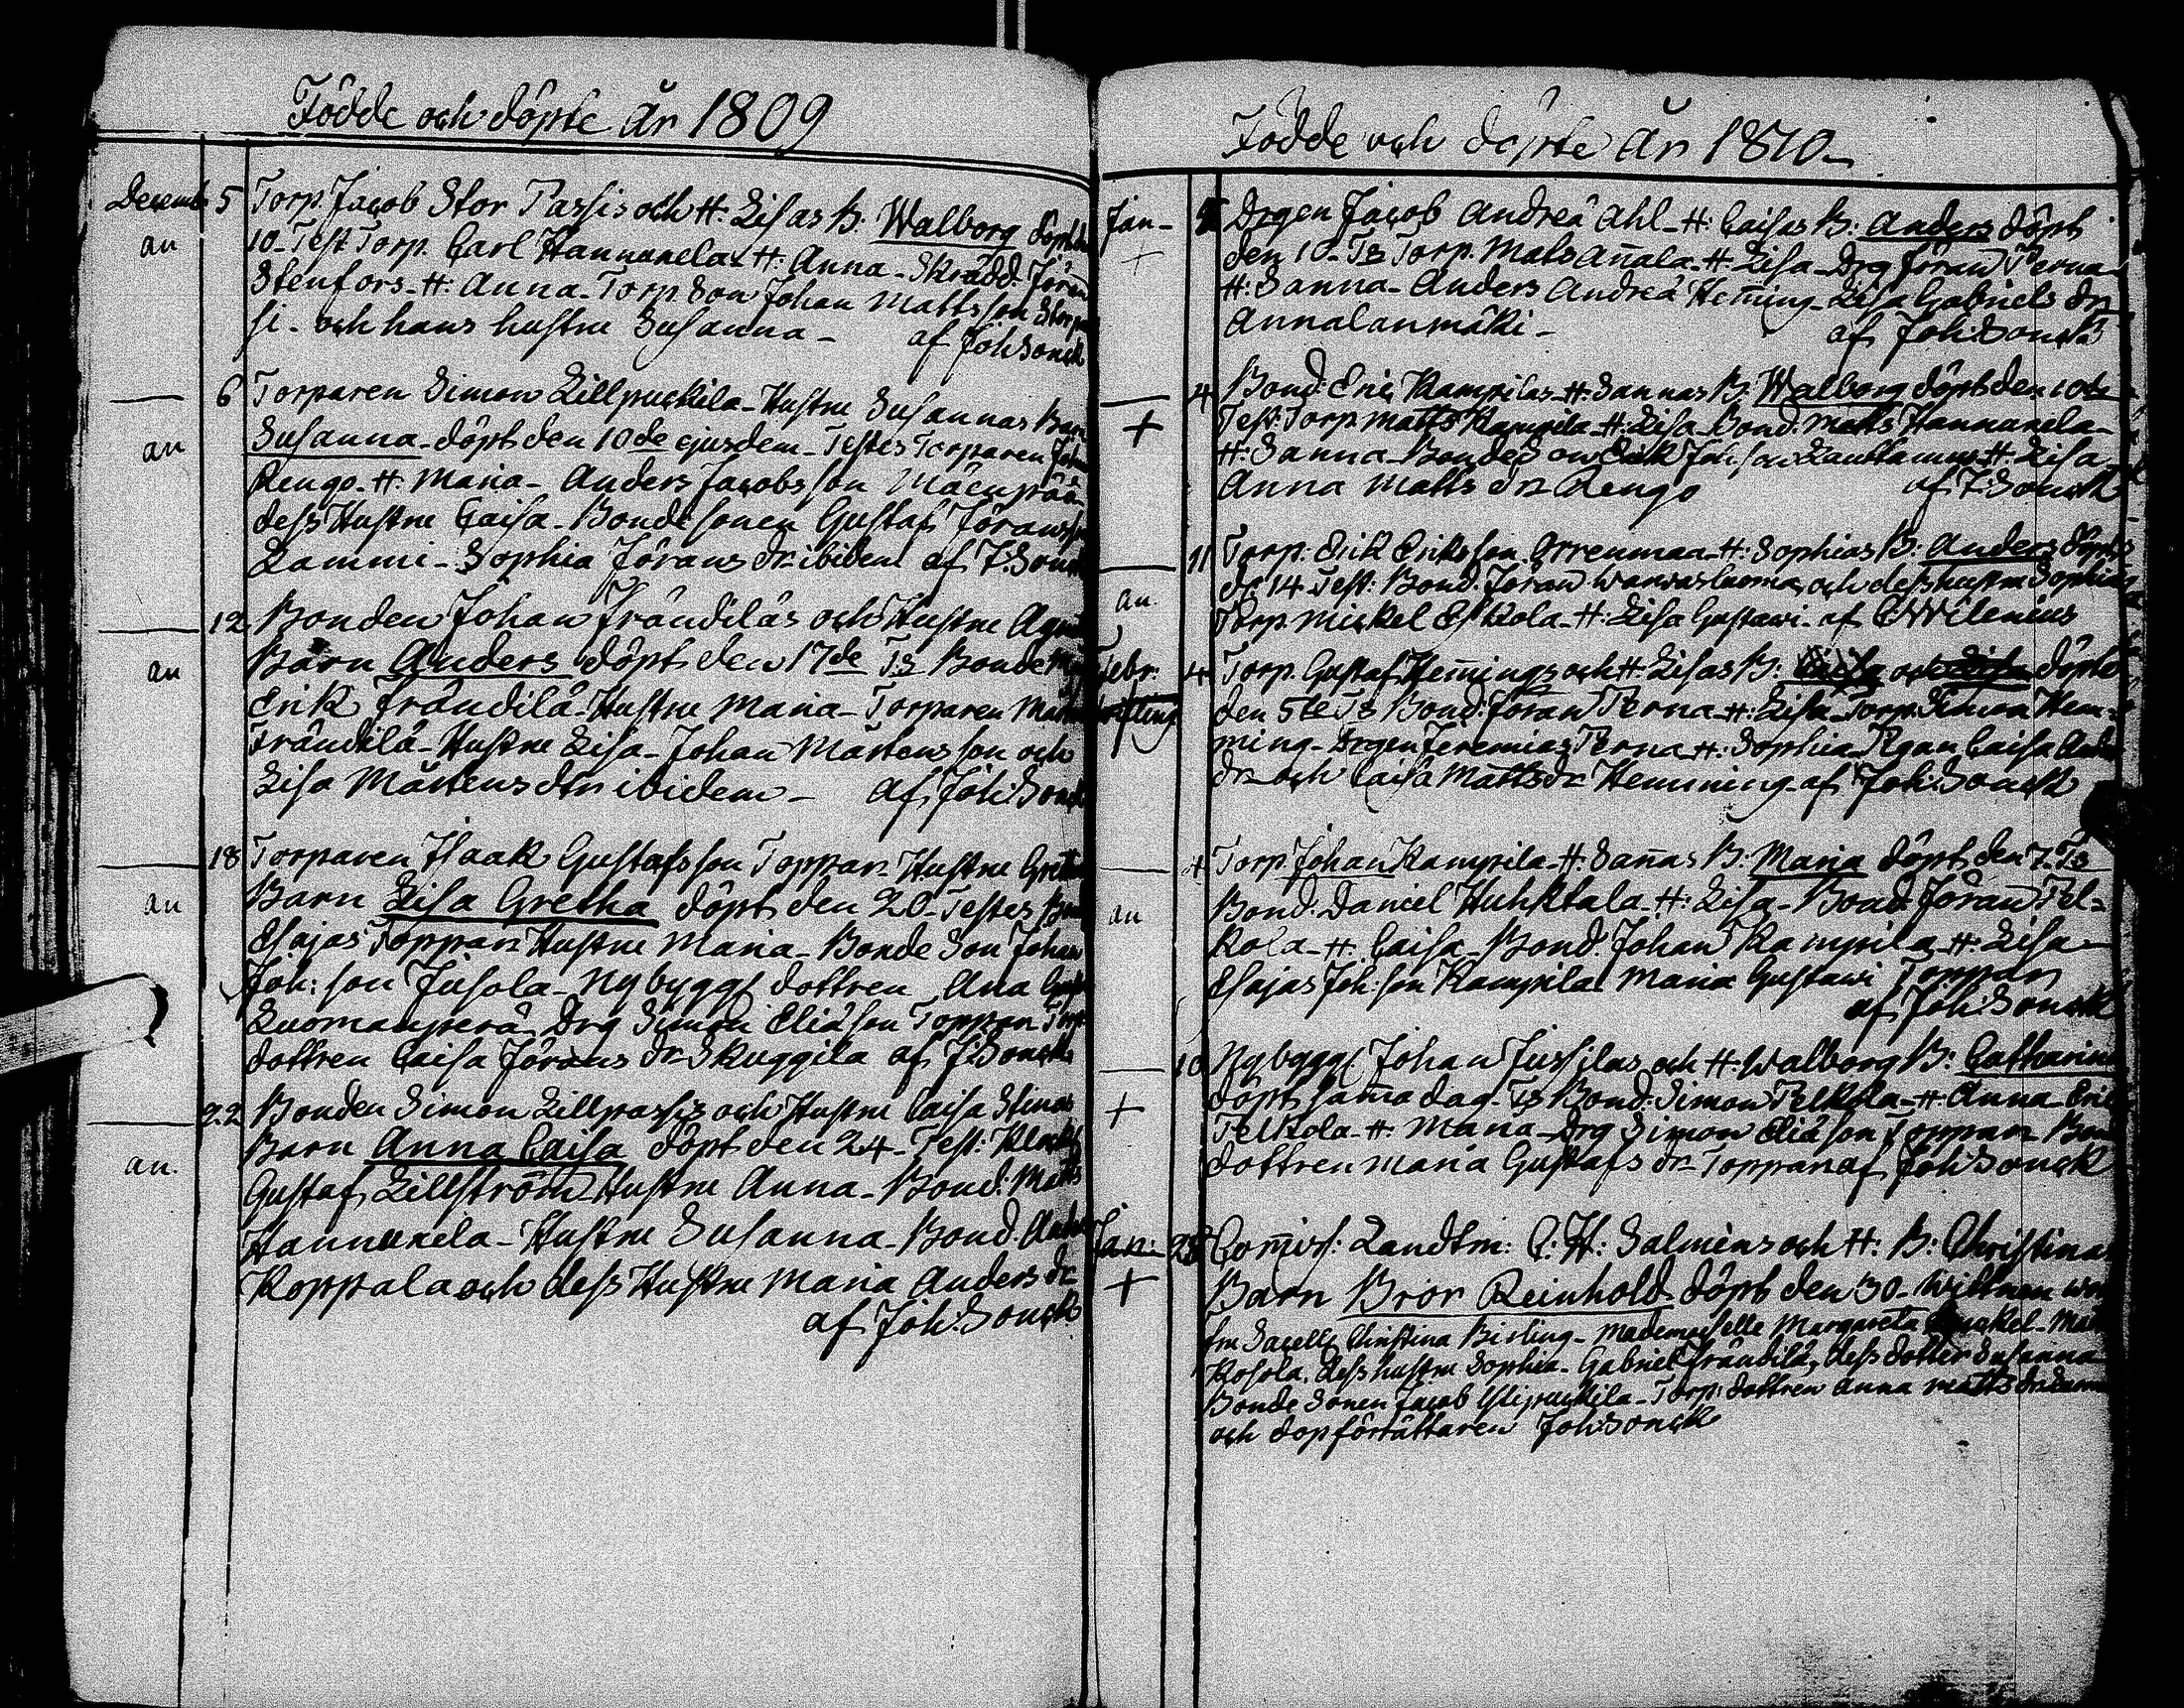 Födde och döpte År 1809
Decemb. 5 Torp. Jacob Stor Passis och H: Lisas B: Walborg döpt den
an 10 - Test Torp. Carl Hannanela - H: Anna - Skrädd. Jöran
Stenfors - H: Anna - Torp. Son Johan Mattsson Stor pas
si - och hans hustru Susanna -
af Joh: Sonck
6 Torparen Simon Lillpuckila - Hustru Susannas Barn
an Susanna - döpt den 10de ejusdem - Testes Torparen Johan
Rengo - H: Maria - Anders Jacobsson Mäenpää
dess Hustru Caisa - Bonde sonen Gustaf Jöransson
Lammi - Sophia Jörans dr ibidem af J: Sonck
12 Bonden Johan Frändiläs och Hustru Agnes
an Barn Anders döpt den 17de Ts Bonde
Erik Fråndilä - Hustru Maria - Torparen
Fråndilä - Hustru Lisa - Johan Mårtensson och
Lisa Mårtens dtr ibidem - af Joh: Sonck
18 Torparen Isaak Gustafsson Toppari - Hustru Grethas
an Barn Lisa Gretha döpt den 20 - Testes
Esajas Toppari Hustru Maria - Bonde Son Johan
Joh: son Jusola - Nybyggs dottren Ana
Luomanperä - Drg Simon Eliäson Toppari Torp.
dottren Caisa Jörans dr Skuggila af J: Sonck
22 Bonden Simon Lillpassis och Hustru Caisa Stinas
an. Barn Anna Caisa döpt den 24 - Test: Klock.
Gustaf Lillström - Hustru Anna - Bond: Matts
Hannunela - Hustru Susanna - Bond.
Koppala och dess Hustru Maria Anders dr
af Joh: Sonck
Födde och döpte År 1810 -
Jan - Drgen Jacob Andreä Ahl - H: Caisas B: Anders döpt
+ den 10 - Ts Torp. Mats Añala - H: Lisa - Drg Jöran Perna -
H: Sanna - Anders Andreä Heming - Lisa Gabriels dr
Annalanmäki -
af Joh: Sonck
4 Bond: Eric Kampilas - H: Sannas B: Walborg döpt den 10de
+ Test: Torp Matts Kampila - H: Lisa - Bond. Matts Hannanela -
H: Sanna - Bonde Son Erik Joh: son - H: Lisa -
Anna Matts dr Rengo
af J: Sonck
11 Torp: Erik Eriksson Orrenmaa - H: Sophias B: Anders döpt
an. d: 14 - Test: Bond. Jöran Warwasluoma och dess hustru Sophia
Torp. Mickel Eskola - H: Lisa Gustawi - af C Wilenius
Febr: 4 Torp. Gustaf Hemings och H: Lisas B: döpte
den 5te Ts Bond: Jöran Perna - H: Lisa - Torp. Simon Hem=
ming - Drgen Jeremias Perna - H: Sophia - Pgan Caisa
dr och Caisa Matts dr Hemming - af Joh: Sonck
4 Torp. Johan Kampila - H: Sañas B: Maria döpt den 7. Ts
an Bond. Daniel Huhktala - H: Lisa - Bond: Jöran Pel=
kola - H. Caisa - Bond. Johan Kampila - H: Lisa -
Esajas Joh: son Kampila Maria Gustawi Toppari
af Joh: Sonck
10 Nybygg. Johan Jussilas och H: Walborg B: Catharina
+ döpt sam̃a dag - Ts Bond: Simon Pelkola - H: Anna - Eric
Pelkola - H: Maria - Drg Simon Eliäson Toppari
dottren Maria Gustafs dr Toppari af Joh: Sonck
Jan: 28 Com̃iss: Landtm: C: H: Salmèns och H: B: Christinas
+ Barn Bror Reinhold döpt den 30 - Wittnen
fru Sacell. Christina Birling - Mademoiselle Margareta
Rosola, dess hustru Sophia - Gabriel Fråndilä, dess dotter Susanna
Bonde Sonen Jacob - Torp: dottren Anna Matts dr
och dopförrättaren Joh: Sonck